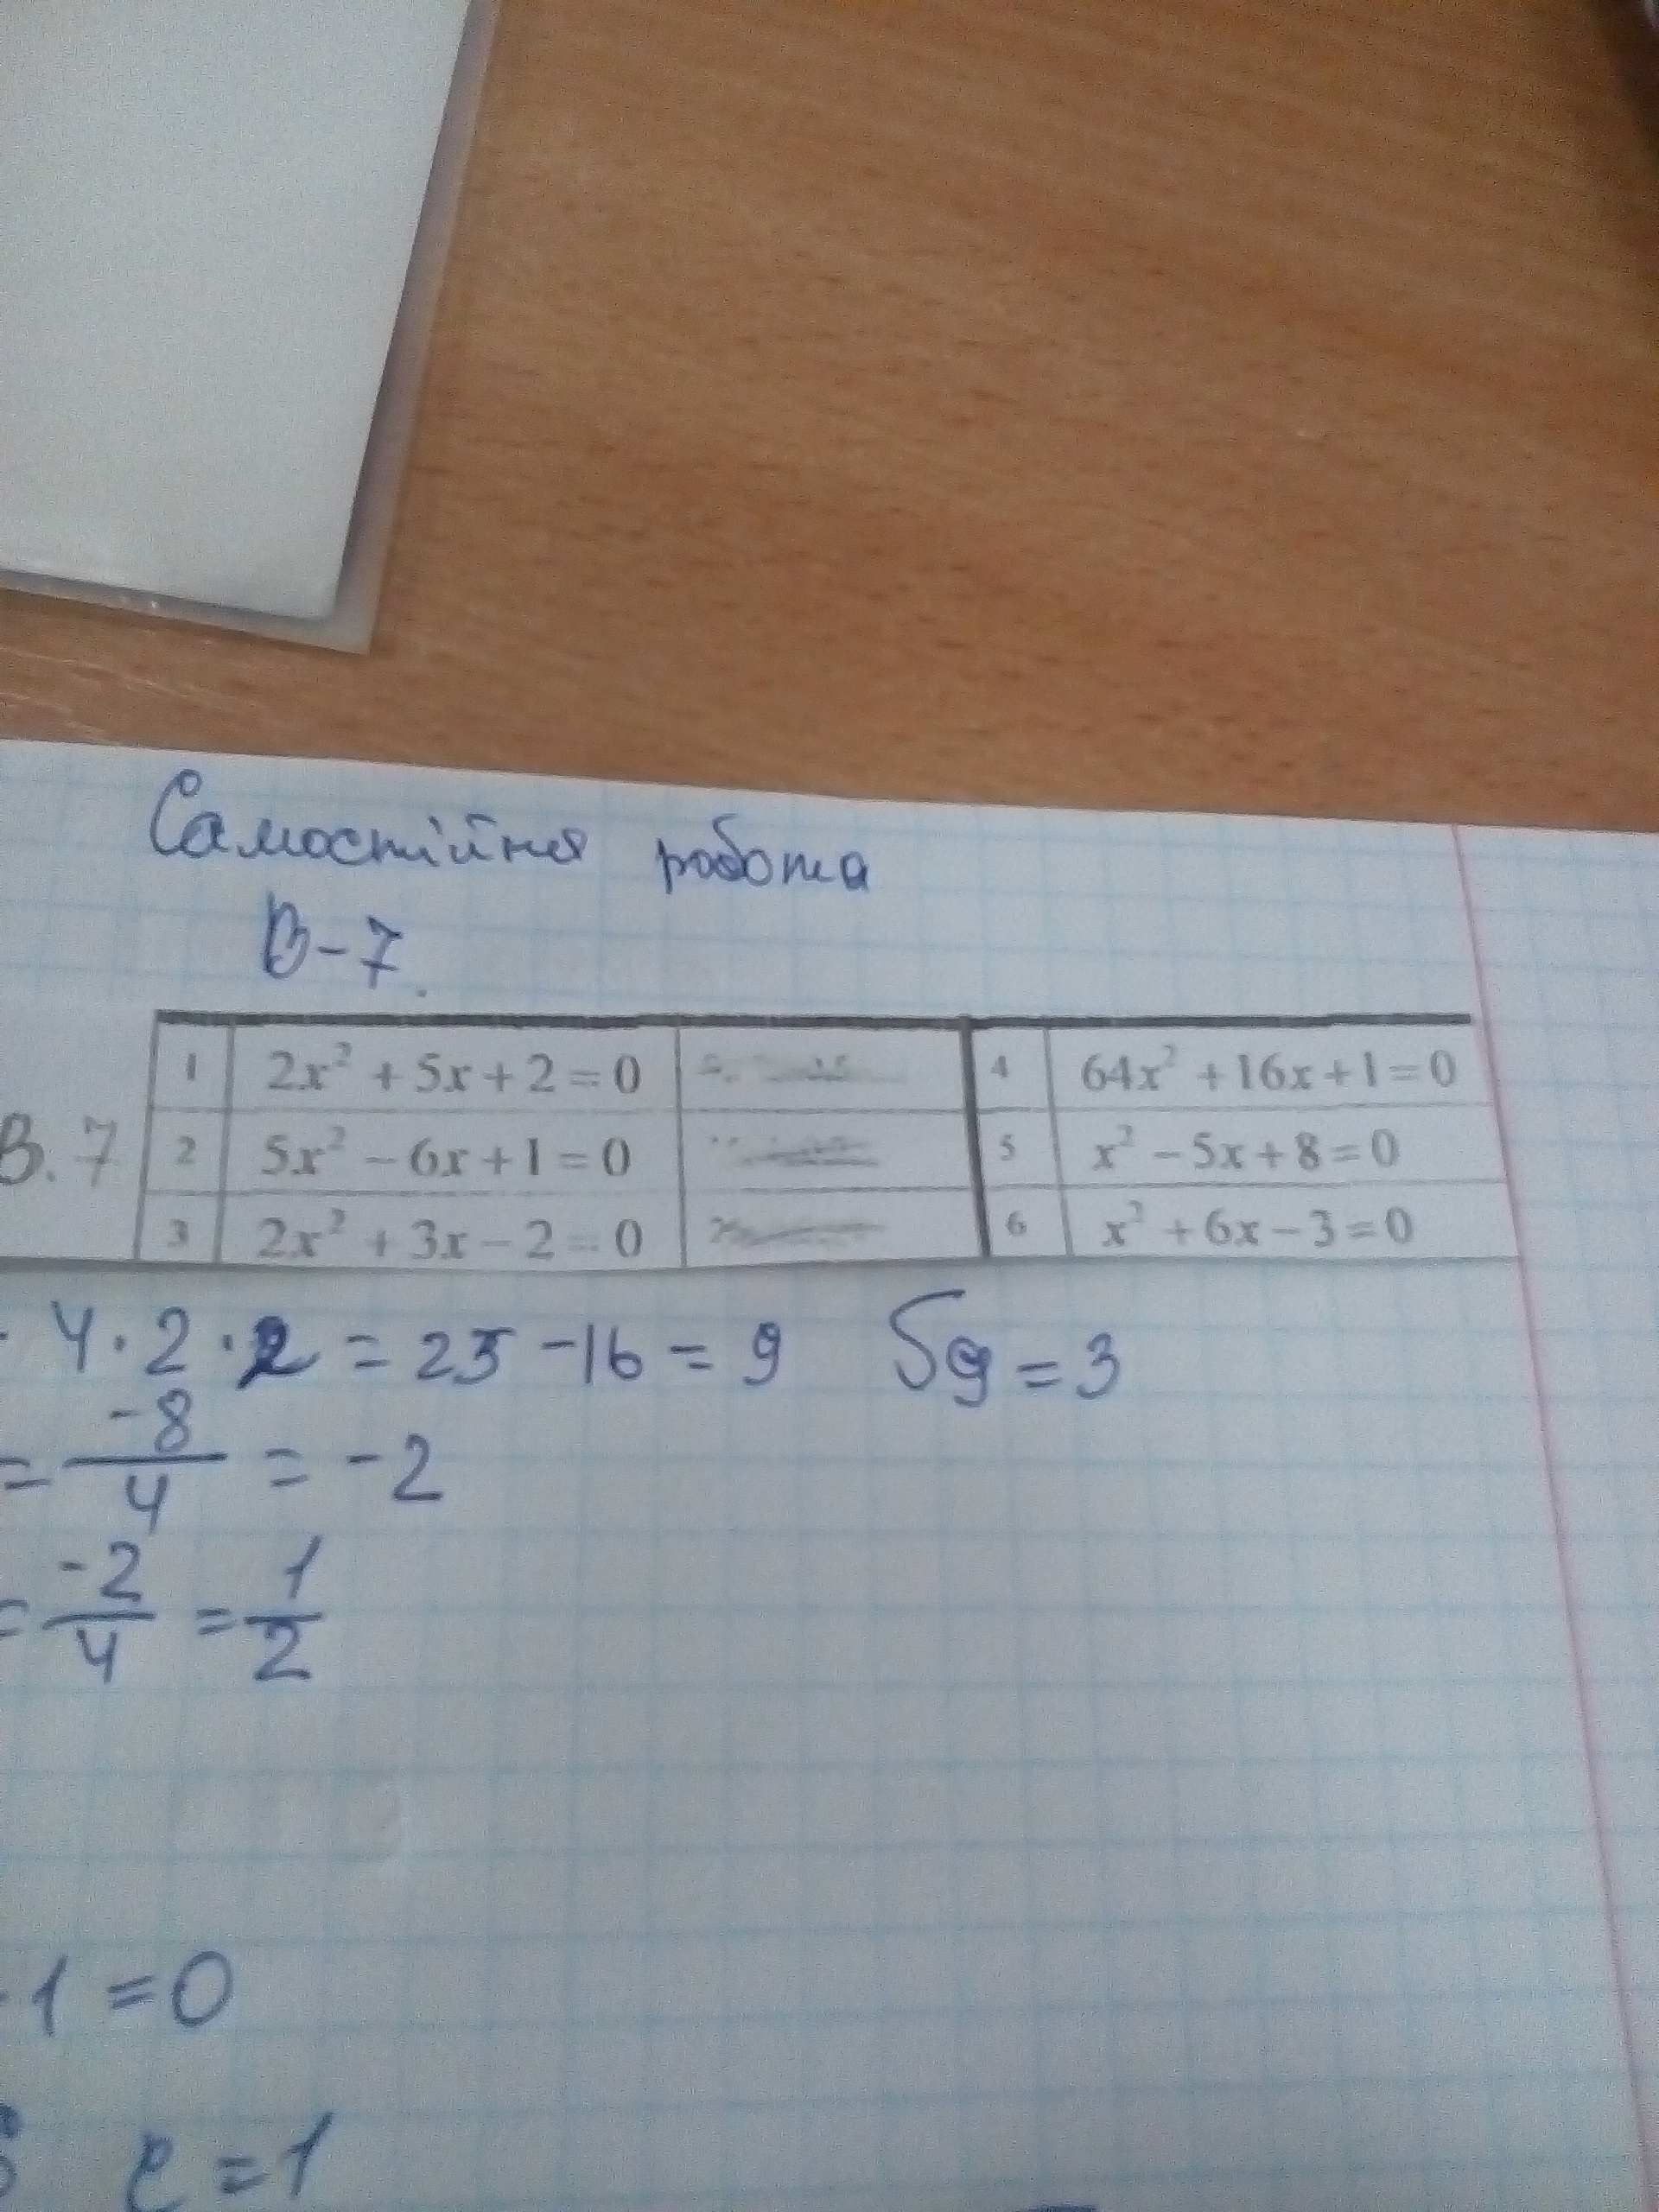 Самостійна робота
В-7.
В.7
1 2x² + 5x + 2 = 0 4 64x² + 16x + 1 = 0
2 5x² − 6x + 1 = 0 5 x² − 5x + 8 = 0
3 2x² + 3x − 2 = 0 6 x² + 6x − 3 = 0
· 4 · 2 · 2 = 25 − 16 = 9 √9 = 3
= -8/4 = -2
= -2/4 = 1/2
1 = 0
c = 1